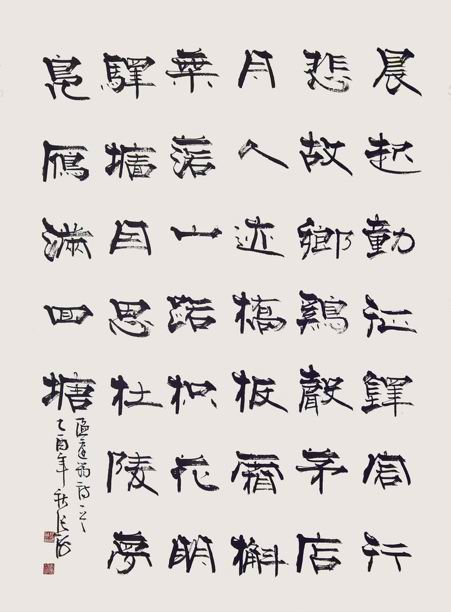 晨起動征鐸客行
悲故鄉鷄聲茅店
月人迹橋板霜槲
葉落山路枳花明
驛墻因思杜陵夢
鳧鴈滿回塘
溫庭筠詩
乙酉年秋